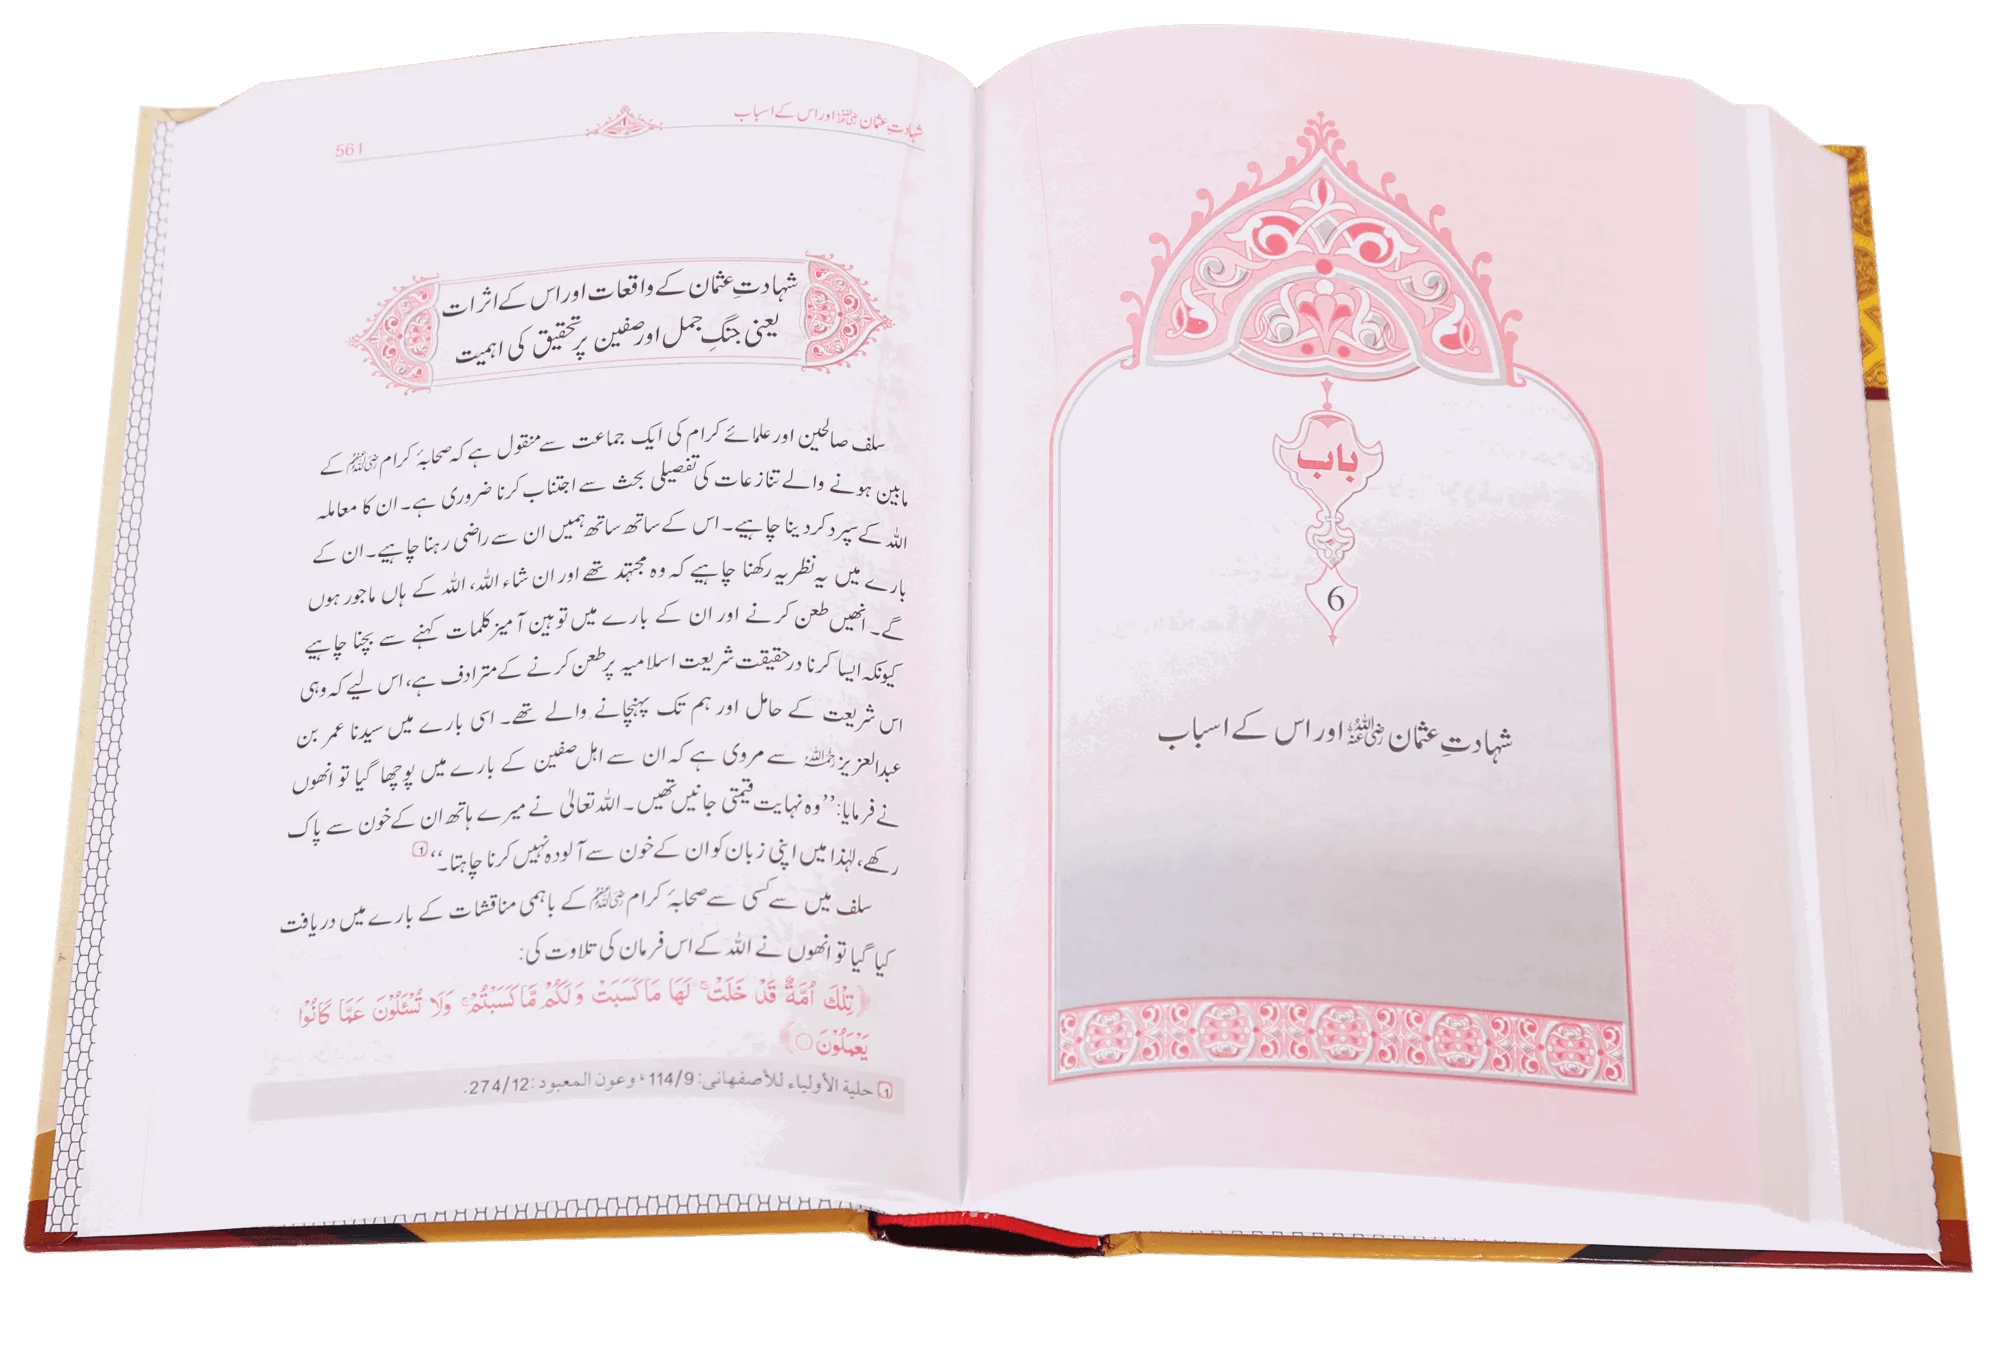 باب
6
شہادتِ عثمان رضی اللہ عنہ اور اس کے اسباب
شہادتِ عثمان رضی اللہ عنہ اور اس کے اسباب
561
شہادتِ عثمان کے واقعات اور اس کے اثرات
یعنی جنگِ جمل اور صفین پر تحقیق کی اہمیت
سلف صالحین اور علمائے کرام کی ایک جماعت سے منقول ہے کہ صحابۂ کرام رضی اللہ عنہم کے
مابین ہونے والے تنازعات کی تفصیلی بحث سے اجتناب کرنا ضروری ہے۔ ان کا معاملہ
اللہ کے سپرد کر دینا چاہیے۔ اس کے ساتھ ساتھ ہمیں ان سے راضی رہنا چاہیے۔ ان کے
بارے میں یہ نظریہ رکھنا چاہیے کہ وہ مجتہد تھے اور ان شاء اللہ، اللہ کے ہاں ماجور ہوں
گے۔ انھیں طعن کرنے اور ان کے بارے میں توہین آمیز کلمات کہنے سے بچنا چاہیے
کیونکہ ایسا کرنا درحقیقت شریعت اسلامیہ پر طعن کرنے کے مترادف ہے، اس لیے کہ وہی
اس شریعت کے حامل اور ہم تک پہنچانے والے تھے۔ اسی بارے میں سیدنا عمر بن
عبدالعزیز رحمہ اللہ سے مروی ہے کہ ان سے اہل صفین کے بارے میں پوچھا گیا تو انھوں
نے فرمایا: ’’وہ نہایت قیمتی جانیں تھیں۔ اللہ تعالیٰ نے میرے ہاتھ ان کے خون سے پاک
رکھے، لہٰذا میں اپنی زبان کو ان کے خون سے آلودہ نہیں کرنا چاہتا۔‘‘ 1
سلف میں سے کسی سے صحابۂ کرام رضی اللہ عنہم کے باہمی مناقشات کے بارے میں دریافت
کیا گیا تو انھوں نے اللہ کے اس فرمان کی تلاوت کی:
﴿تِلْكَ اُمَّةٌ قَدْ خَلَتْ ۚ لَهَا مَا كَسَبَتْ وَلَكُمْ مَّا كَسَبْتُمْ ۚ وَلَا تُسْـَٔلُوْنَ عَمَّا كَانُوْا
يَعْمَلُوْنَ ○﴾
1 حلية الأولياء للأصفهاني: 114/9، وعون المعبود: 274/12.